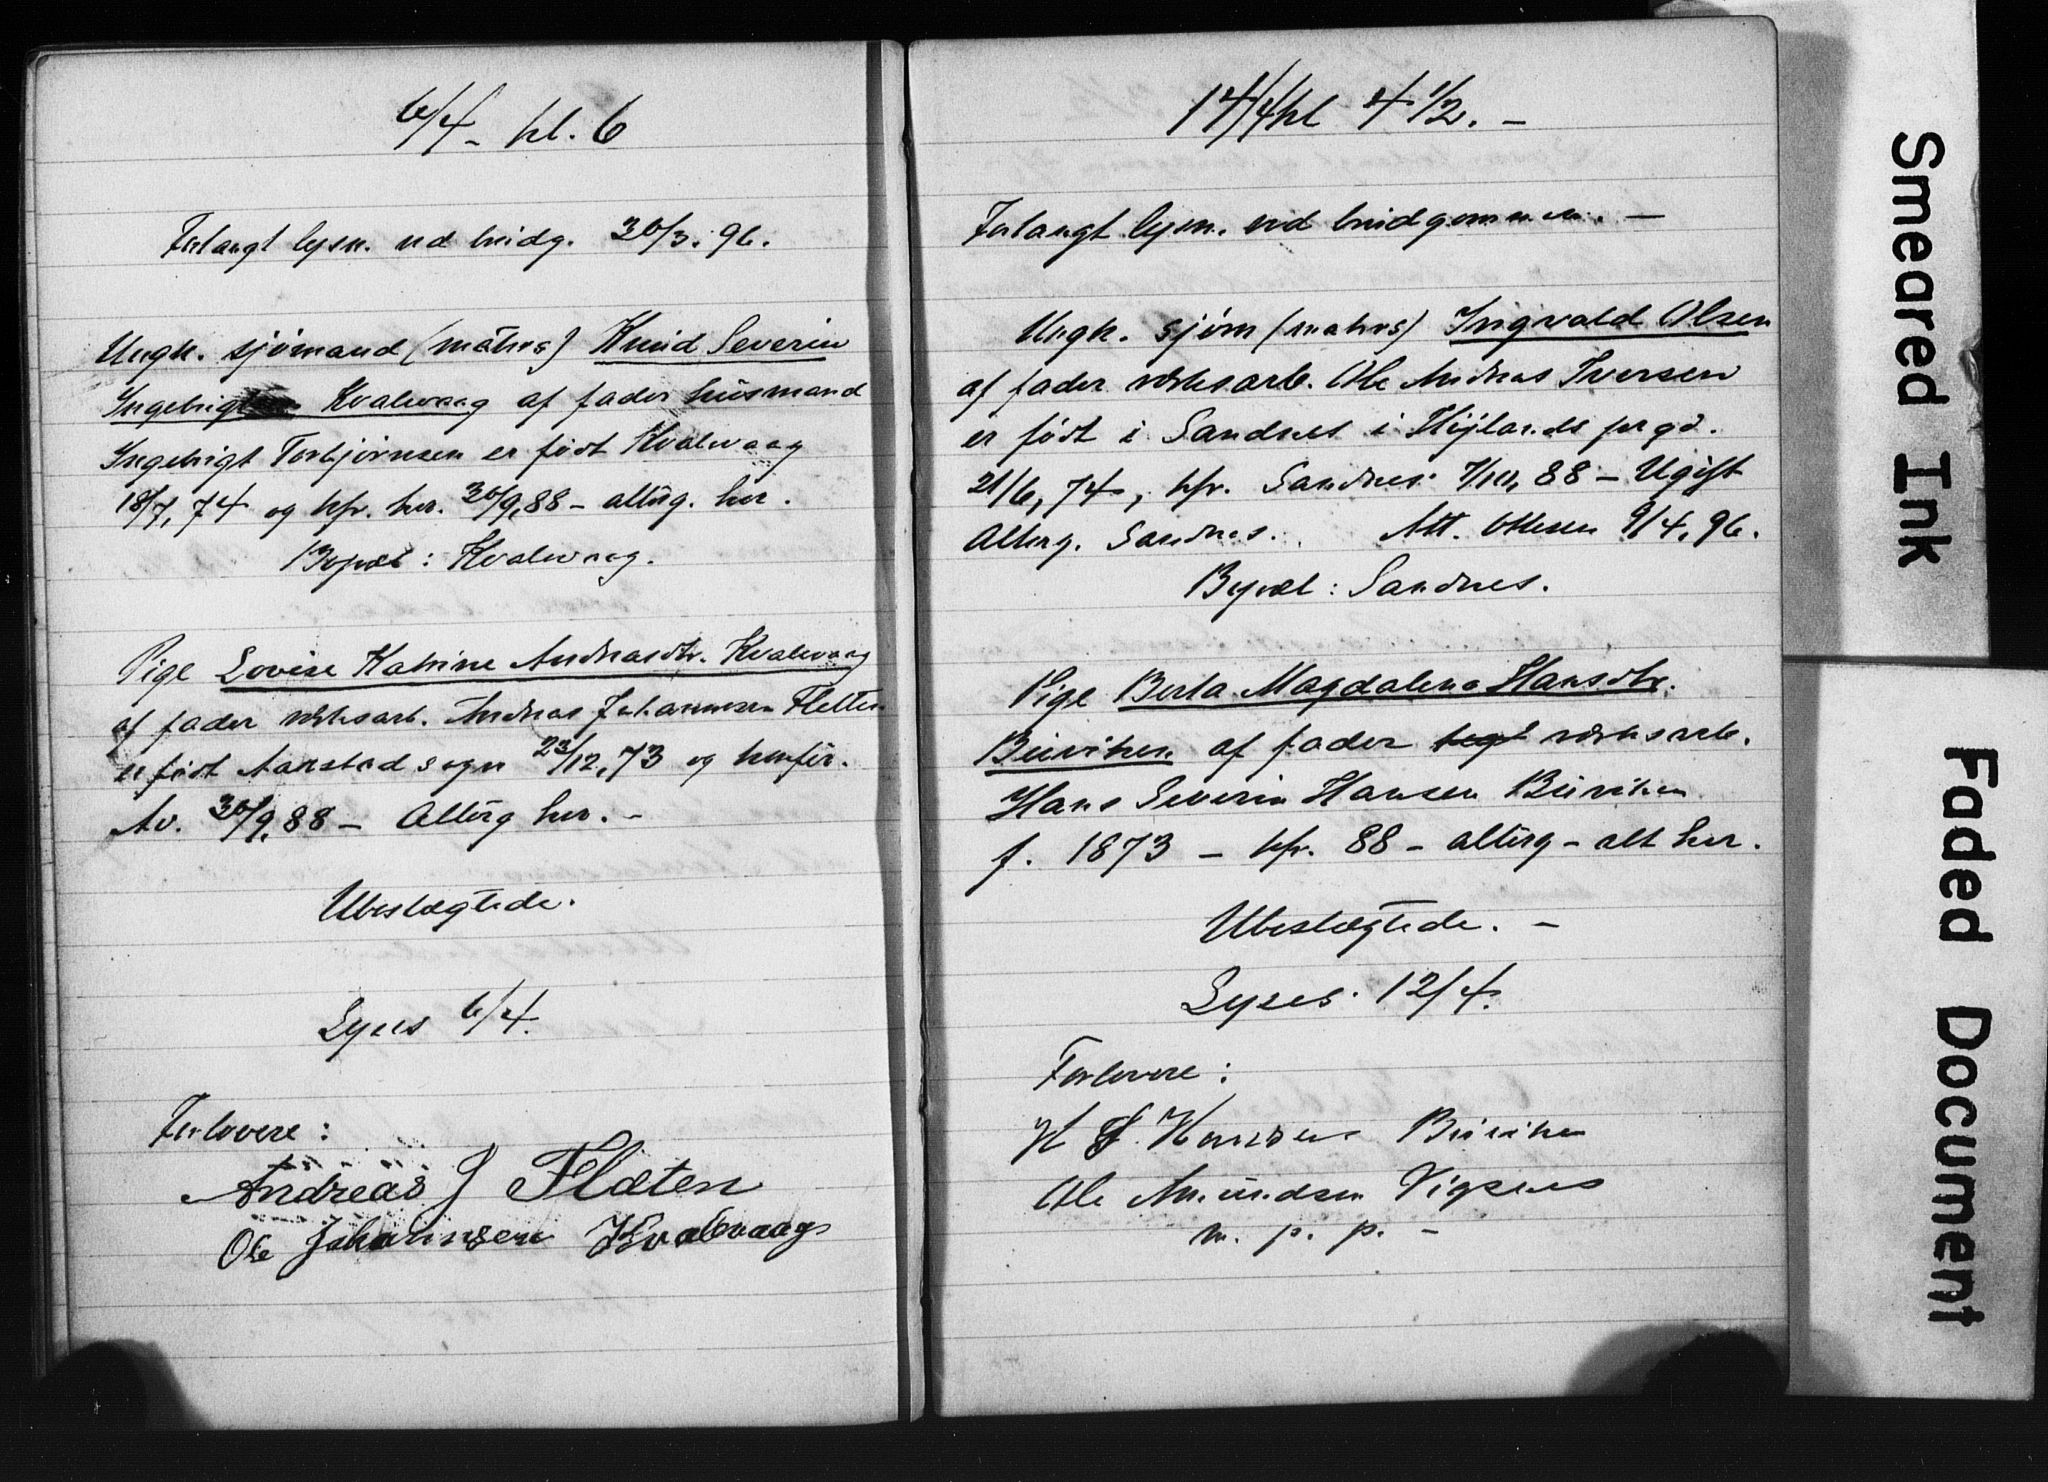 6/4 - kl. 6
Forlangt lysn. ved brudg. 30/3. 96.
Ungk. sjömand (matros) Knud Severin
Ingebrigtsen Kvalevaag af fader husmand
Ingebrigt Torbjörnsen er födt Kvalevaag
18/7, 74 og kfr. her. 30/9, 88 - altrg. her.
Bopæl: Kvalevaag.
Pige Lovise Katrine Andreasdtr. Kvalevaag
af fader værksarb. Andreas Johannesen Fletten
er födt Aarstad sogn 23/12, 73 og konfir.
Av. 30/9, 88 - Altrg her. -
Ubeslægtede.
Lyses 6/4.
Forlovere:
Andreas J Flæten
Ole Johannsen Kvalevaag
14/4 kl 4 1/2. -
Forlangt lysn. ved brudgommen. -
Ungk. sjöm (matros) Ingvald Olsen
af fader værksarb. Ole Andreas Iversen
er födt i Sandnes i Höjlands prgd.
21/6, 74, kfr. Sandnes 7/10, 88 - Ugift
Altrg. Sandnes. Att. 9/4, 96.
Bopæl: Sandnes.
Pige Berta Magdalena Hansdtr.
Buviken af fader værksarb.
Hans Severin Hansen Buviken
f. 1873 - kfr. 88 - altrg - alt her.
Ubeslægtede. -
Lyses. 12/4.
Forlovere:
H S. Hansen Buviken
Ole Amundsen Vigsnes
m. p. p. -
Smeared Ink
Faded Document